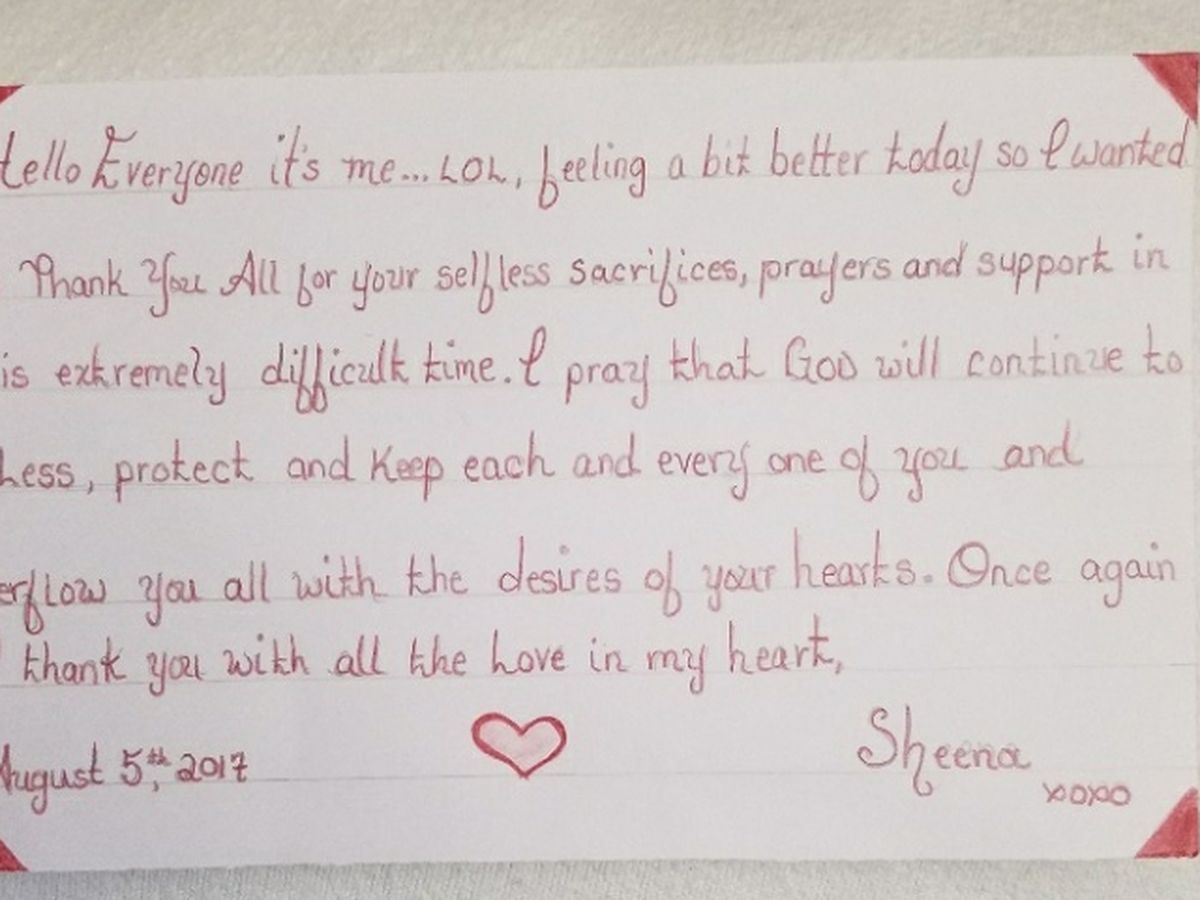 Hello Everyone it's me... LOL, feeling a bit better today so I wanted
Thank You All for your selfless sacrifices, prayers and support in
is extremely difficult time. I pray that GOD will continue to
Less, protect and Keep each and every one of you and
erflow you all with the desires of your hearts. Once again
thank you with all the Love in my heart,
August 5th, 2017
Sheena
xoxo